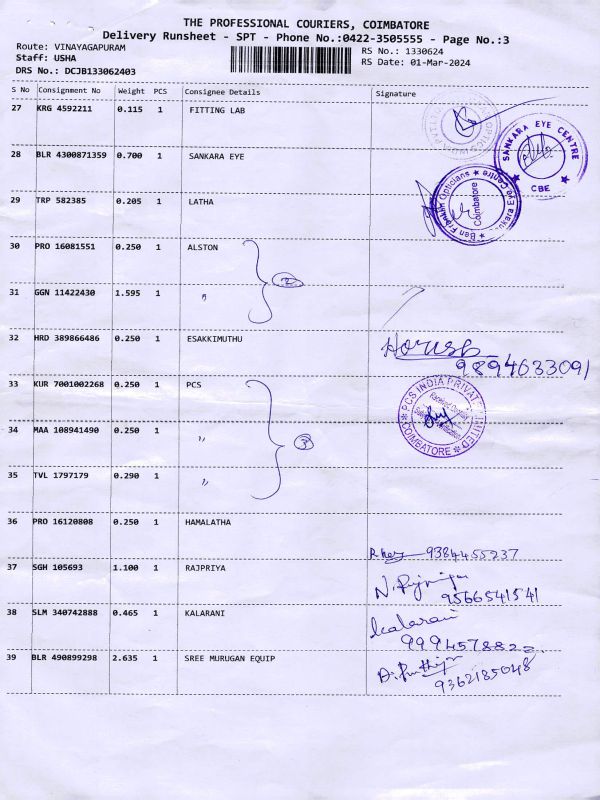 THE PROFESSIONAL COURIERS, COIMBATORE
Delivery Runsheet - SPT - Phone No.:0422-3505555 - Page No.:3
Route: VINAYAGAPURAM
Staff: USHA
DRS No.: DCJB133062403
RS No.: 1330624
RS Date: 01-Mar-2024
S No Consignment No Weight PCS Consignee Details Signature
27 KRG 4592211 0.115 1 FITTING LAB
SANKARA EYE CENTRE
CBE
28 BLR 4300871359 0.700 1 SANKARA EYE
Ben Franklin Opticians ★ Sankara Eye Centre
Coimbatore
29 TRP 582385 0.205 1 LATHA
30 PRO 16081551 0.250 1 ALSTON
2
31 GGN 11422430 1.595 1 "
32 HRD 389866486 0.250 1 ESAKKIMUTHU
9894633091
33 KUR 7001002268 0.250 1 PCS
PCS INDIA PRIVATE LIMITED
COIMBATORE
34 MAA 108941490 0.250 1 "
3
35 TVL 1797179 0.290 1 "
36 PRO 16120808 0.250 1 HAMALATHA
9384455237
37 SGH 105693 1.100 1 RAJPRIYA
9566541541
38 SLM 340742888 0.465 1 KALARANI
Kalarani
9994578822
39 BLR 490899298 2.635 1 SREE MURUGAN EQUIP
9362185048